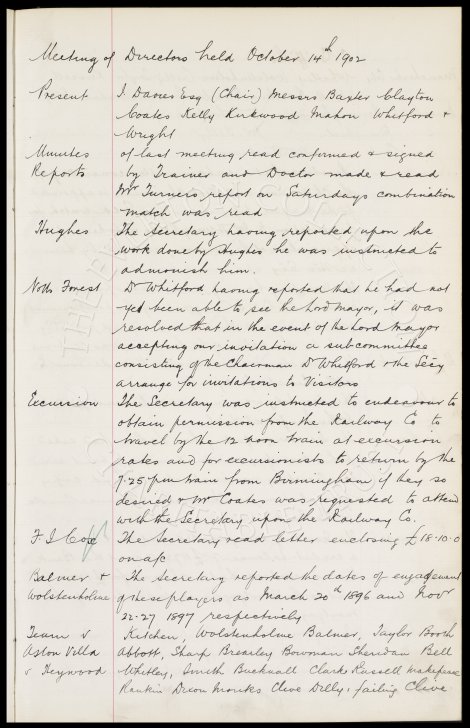 Meeting of Directors held October 14th 1902
Present J. Davies Esq (Chair) Messrs Baxter Clayton
Coates Kelly Kirkwood Mahon Whitford &
Wright
Minutes of last meeting read confirmed & signed
Reports by Trainer and Doctor made & read
Mr Turners report on Saturdays combination
match was read
Hughes The Secretary having reported upon the
work done by Hughes he was instructed to
admonish him.
Notts Forest Dr Whitford having reported that he had not
yet been able to see the Lord Mayor, it was
resolved that in the event of the Lord Mayor
accepting our invitation a sub committee
consisting of the Chairman Dr Whitford & the Secy
arrange for invitations to Visitors
Excursion The Secretary was instructed to endeavour to
obtain permission from the Railway Co to
travel by the 12 noon train at excursion
rates and for excursionists to return by the
7.25 pm train from Birmingham if they so
desired & Mr Coates was requested to attend
with the Secretary upon the Railway Co.
F J Cox The Secretary read letter enclosing £18-10-0
on a/c
Balmer & The Secretary reported the dates of engagement
Wolstenholme of these players as March 20th 1896 and Novr
22-27 1897 respectively
Team v Kitchen, Wolstenholme Balmer, Taylor Booth
Aston Villa Abbott, Sharp Brearley Bowman Sheridan Bell
v Heywood Whitley, Smith Bucknall Clark Russell Makepeace
Rankin Dixon Monks Clive Dilly, failing Clive